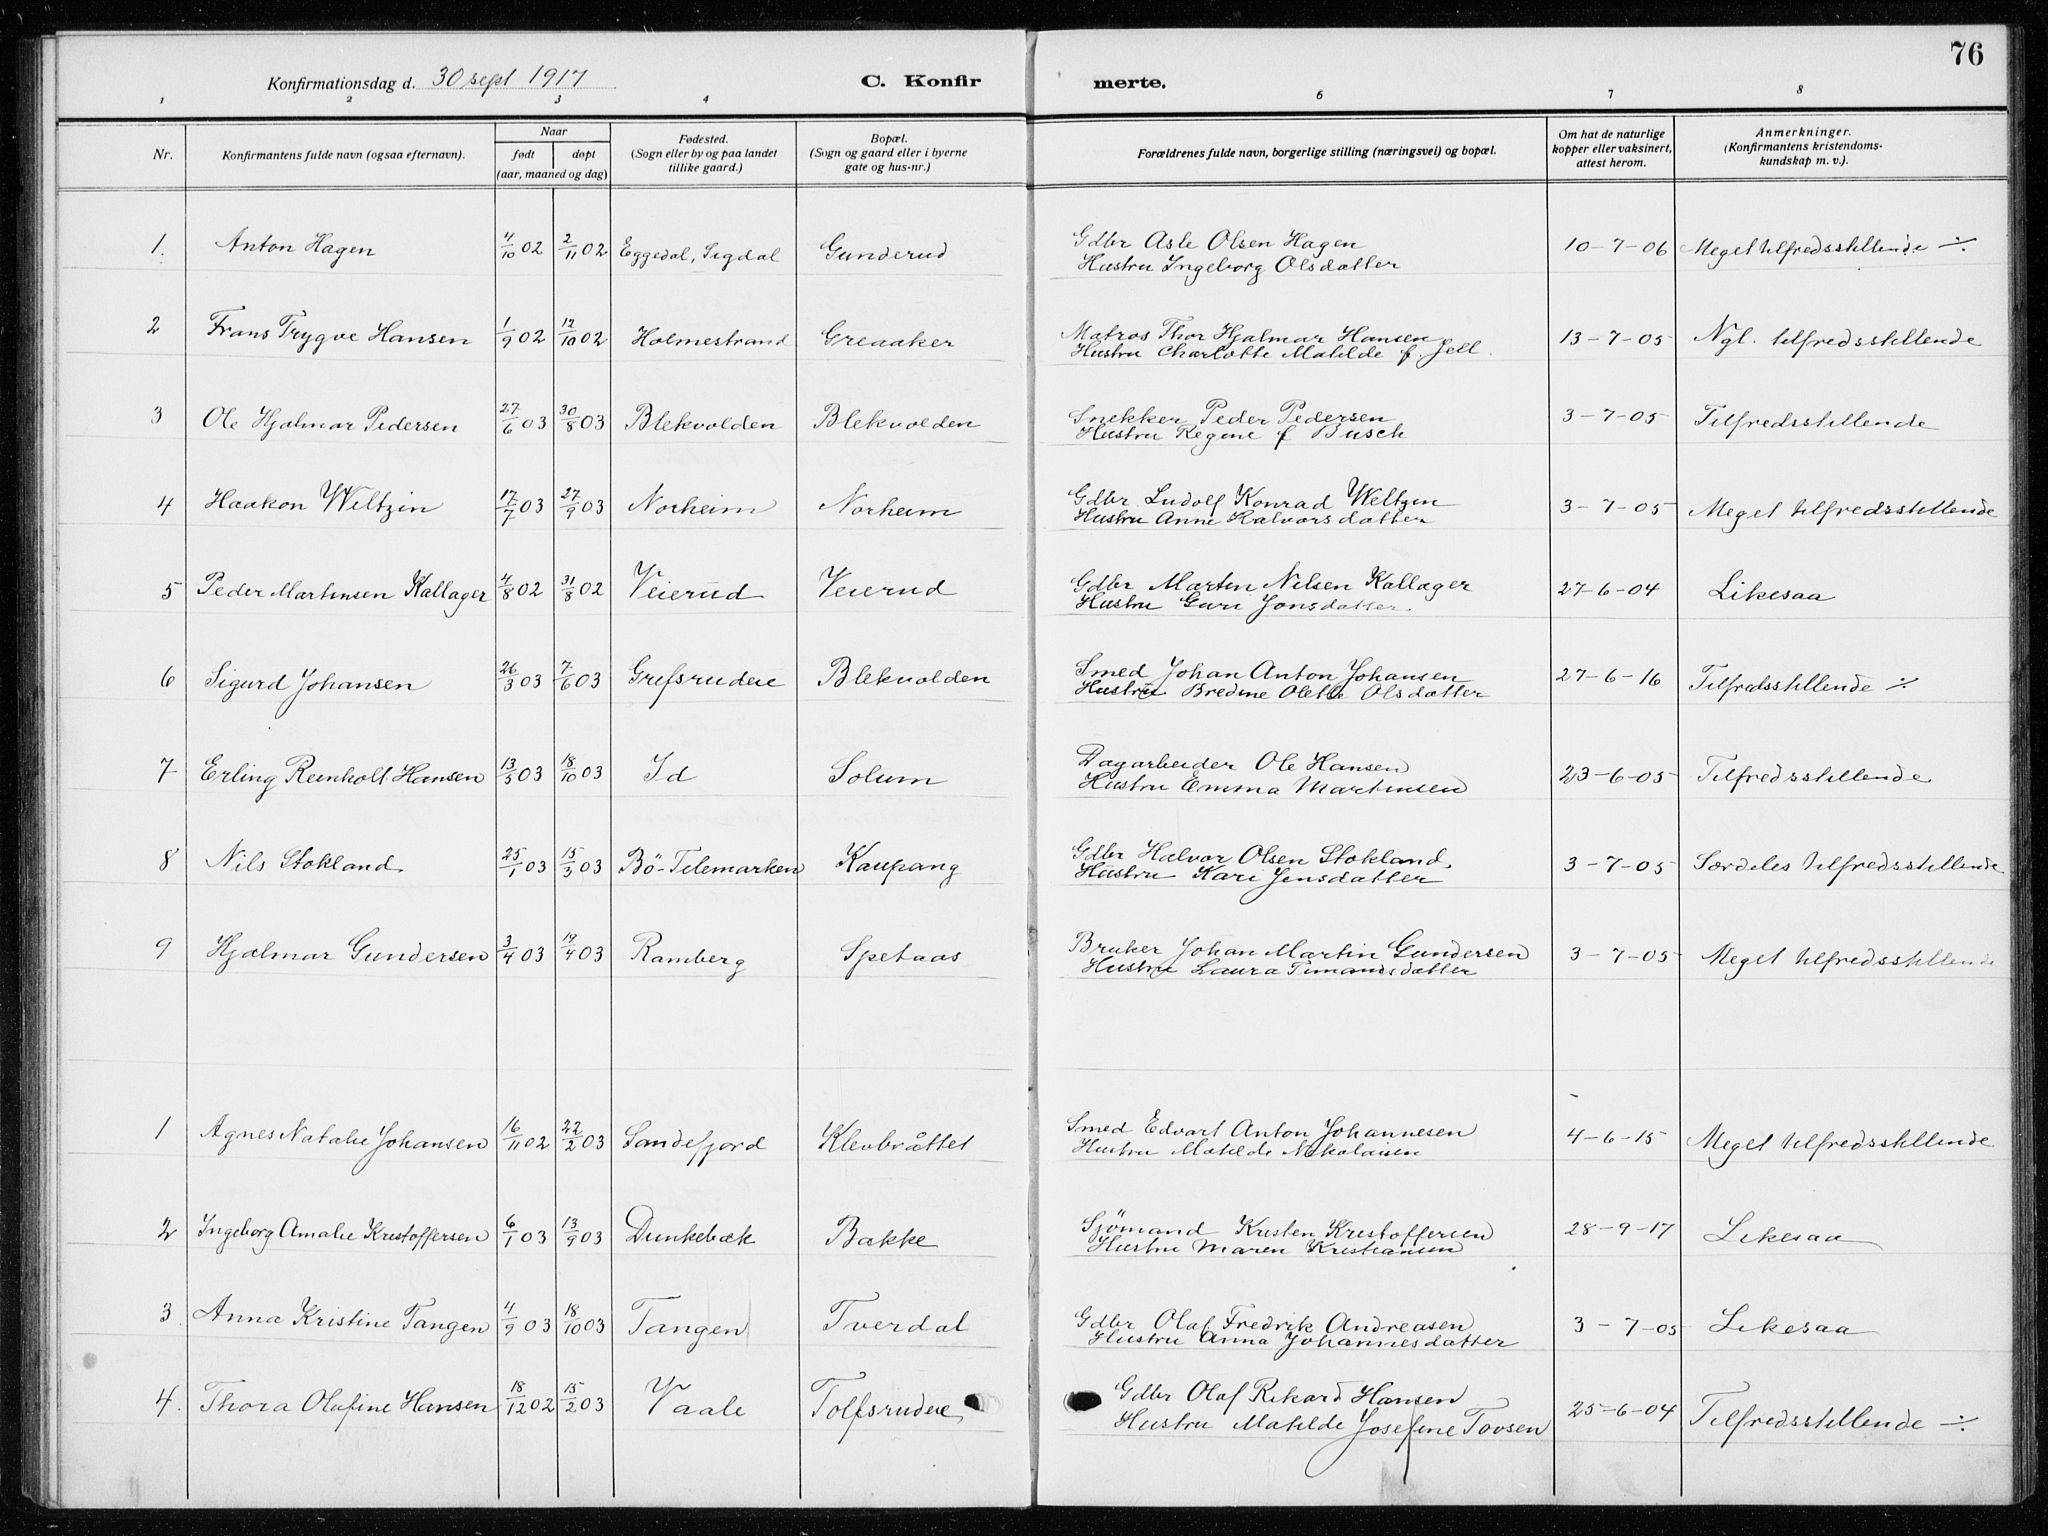 76
Konfirmationsdag d. 30 sept 1917
C. Konfir merte.
1 2 3 4 6 7 8
Nr.
Konfirmantens fulde navn (ogsaa efternavn).
Naar
født døpt
(aar, maaned og dag)
Fødested.
(Sogn eller by og paa landet
tillike gaard.)
Bopæl.
(Sogn og gaard eller i byerne
gate og hus-nr.)
Forældrenes fulde navn, borgerlige stilling (næringsvei) og bopæl.
Om hat de naturlige
kopper eller vaksinert,
attest herom.
Anmerkninger.
(Konfirmantens kristendoms-
kundskap m. v.).
1. Anton Hagen 4/10 02 2/11 02 Eggedal, Sigdal Gunderud Gdbr Asle Olsen Hagen 10-7-06 Meget tilfredsstillende ÷
Hustru Ingeborg Olsdatter
2 Frans Trygve Hansen 1/9 02 12/10 02 Holmestrand Greaaker Matros Thor Hjalmar Hansen 13-7-05 Ngl. tilfredsstillende
Hustru Charlotte Matilde f. Jell.
3 Ole Hjalmar Pedersen 27/6 03 30/8 03 Blekvolden Blekvolden Snekker Peder Pedersen 3-7-05 Tilfredsstillende
Hustru Regine f Busch
4 Haakon Weltzin 17/7 03 27/9 03 Norheim Norheim Gdbr Ludolf Konrad Weltzin 3-7-05 Meget tilfredsstillende
Hustru Anne Halvorsdatter
5 Peder Martinsen Kallager 4/8 02 31/8 02 Veierud Veierud Gdbr Martin Nilsen Kallager 27-6-04 Likesaa
Hustru Guri Jonsdatter.
6 Sigurd Johansen 26/3 03 7/6 03 Grefsrudeie Blekvolden Smed Johan Anton Johansen 27-6-16 Tilfredsstillende ÷
Hustru Bredine Olette Olsdatter
7 Erling Reinholt Hansen 13/5 03 18/10 03 Id Solum Dagarbeider Ole Hansen 23-6-05 Tilfredsstillende
Hustru Emma Martinsen
8 Nils Stokland 25/1 03 15/3 03 Bö-Telemarken Kaupang Gdbr Halvor Olsen Stokland 3-7-05 Særdeles tilfredsstillende
Hustru Kari Jensdatter
9 Hjalmar Gundersen 3/4 03 19/4 03 Ramberg Spetaas Bruker Johan Martin Gundersen 3-7-05 Meget tilfredsstillende
Hustru Laura Timandsdatter
1 Agnes Natalie Johansen 16/11 02 22/2 03 Sandefjord Klevbråttet Smed Edvart Anton Johannesen 4-6-15 Meget tilfredsstillende
Hustru Matilde Nikolaisen
2 Ingeborg Amalie Kristoffersen 6/1 03 13/9 03 Dunkebæk Bakke Sjömand Kristen Kristoffersen 28-9-17 Likesaa
Hustru Maren Kristiansen
3 Anna Kristine Tangen 4/9 03 18/10 03 Tangen Tverdal Gdbr Olaf Fredrik Andreasen 3-7-05 Likesaa
Hustru Anna Johannesdatter
4. Thora Olufine Hansen 18/12 02 15/2 03 Vaale Tolfsrudeie Gdbr Olaf Rikard Hansen 25-6-04 Tilfredsstillende ÷
Hustru Matilde Josefine Tovsen